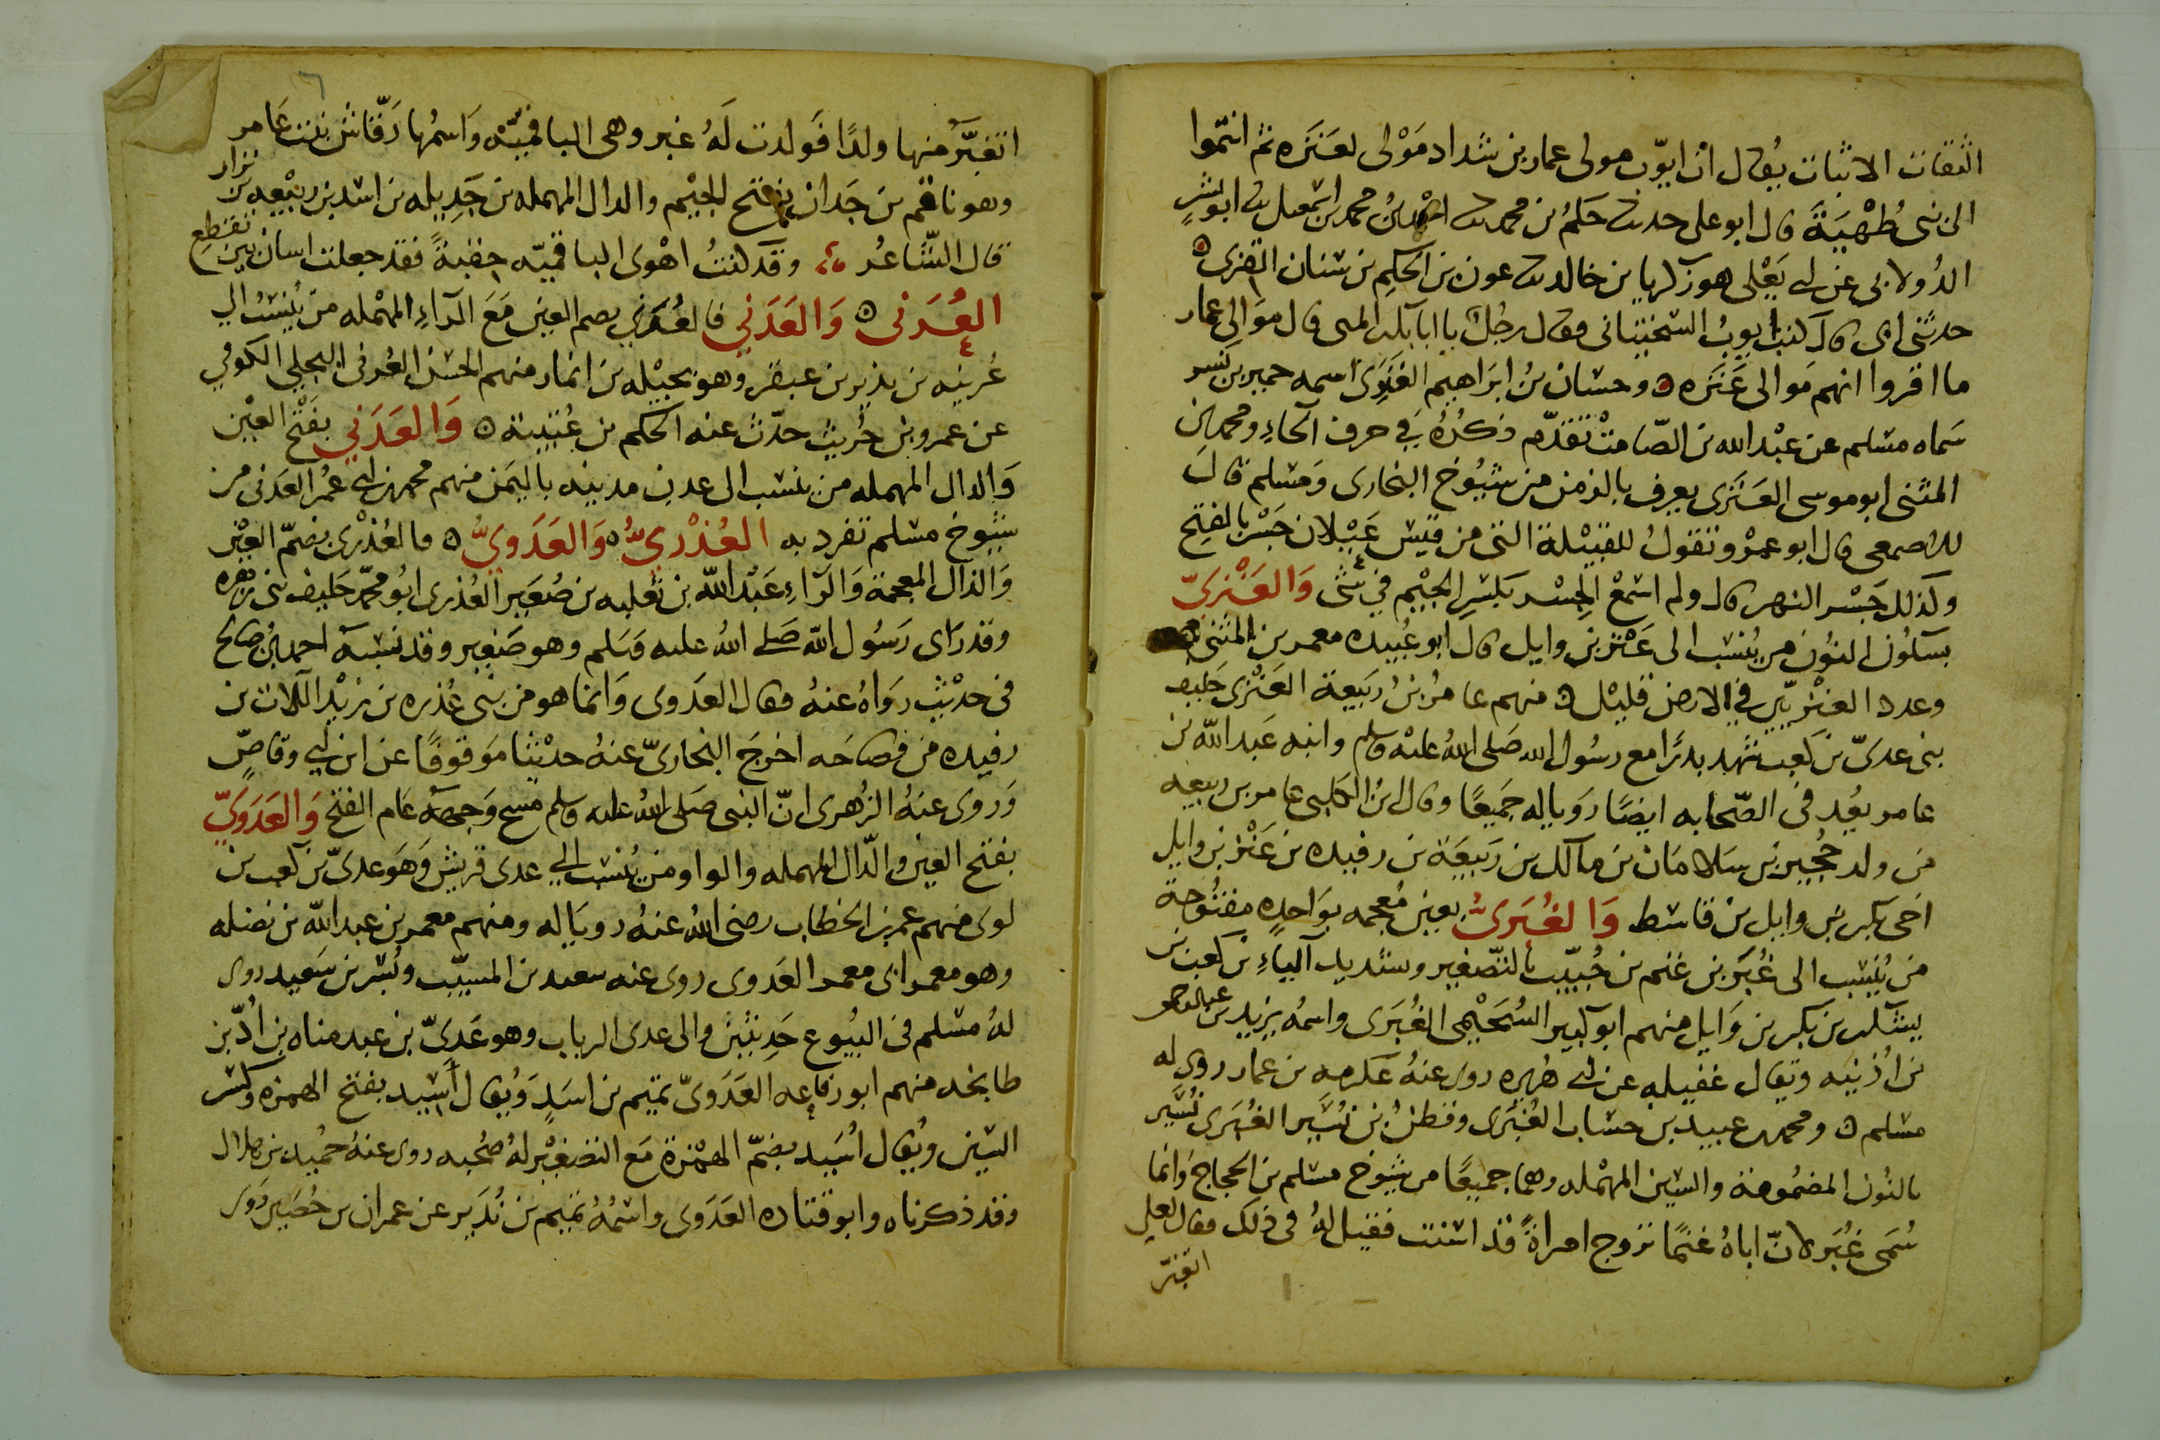 الثقات الاثبات يُقال ان ايوّب مولى عمار بن شداد مَوْلى لعَنَزه ثم انتموا
الى بنى طُهَيَّةَ قال ابو على حدثنا حَكَمُ بن محمد نا احمد بنُ محمد بن اسمعيل نا ابو بشرٍ
الدُولابى عن ابى يَعْلى هو زكريا بن خالد نا عون بن الحكمِ بن سنان المقرى
حدثنى ابى قال كنت ايوبُ السختيانى فقال رجلٌ يا ابا بكر المى قال موالى عمار
ما اقروا انهم مَوالى عَنَزه وحسّان بنُ ابرَاهيم العَنَزِى اسمه حمير بن كسر
سَماه مسلم عن عبْد الله بن الصّامتْ تقدّم ذكرُهُ فِي حرف الحَاءِ ومحمد بن
المثنى ابو موسى العَنَزى يعرف بالزمن من شيُوخ البخارى وَمسلم قالَ
للاصمعى قال ابو عمْرو تقولُ للقبيْلة التى من قيس عَيْلان جَسْر بالفتح
وكذلك جَسْر النهر قال ولم اسمَعْ الجِسْر بكسرِ الجيْم فى شى وَالعَنْزىّ
بسكُون النوُن من يُنسَب الى عَنْز بن وايل قال ابو عُبيده معمر بن المثنى
وعدد العَنْزيّين فِي الارض قليْل منهم عامرُ بنُ ربَيعة العَنْزى حَليف
بنى عدىّ بن كعب شهد بدرًا مع رسُول الله صَلى اللهُ عليْه وسلم وابنه عَبد الله بن
عامر يعُد فى الصّحابه ايضًا روَيا له جَميعًا وقال ابن الكلبى عامر بن ربيعه
من ولد حُجيْر بن سَلامَان بن مالك بن رَبيعَة بن رفيده بن عَنْز بن وايل
اخى بكر بن وايل بن قاسط وَالغُبَرىُّ بغين مُعجمه بوَاحدِه مفتُوحة
من يُنسَب الى غُبَر بن غنم بن حُبيِّب بالتّصغير وتشديد الياءِ بن كعب بن
يشكر بن بكر بن وَايل منهم ابو كبير السُحَيْمى الغُبَرى واسمُه يزيد بن عبد الرحمن
بن اُذينه ويقال غفيله عن ابى هُريره روى عنهُ عكرمه بن عمار روى له
مسلم ومحمد بن عبيد بن حساب الغُبَرى وقطنُ بن نُسَير الغُبَرى نُسَير
بالنُون المضمُومة والسين المهْمله وهما جميعًا من شيُوخ مسلم بن الحجاج وَانما
سُمى غُبَر لانّ اباهُ غنمًا تزوج امراةً قد اسَنت فقيل لهُ فى ذلك فقال لعلى
اتغبّر
اتغبَّرُ منها ولدًا فَولدت لَهُ غبر وهى الباقميّه وَاسمُها رَقّاش بنت عَامر
وهو ناقم بن جَدان بفتح الجيْم والدال المهمله بن جَدِيله بن اسَد بن ربيْعه بن نزار
قال الشّاعُر وقدكنتُ اهْوى الباقميّه حقبةً فقد جعلت اسان بين تقطع
العُرَنى وَالعَدَنِي فالعُرَني بضم العين مَعَ الرَآءِ المهْمله من يُنسَبُ الي
عُرينه بن نذير بن عبقر وهو بجيْله بن انمار منهم الحسَن العُرنى البجلي الكوفي
عن عمرو بن حُريث حدّث عنه الحكم بن عُتيبة وَالعَدَنِي بفَتْح العيْن
وَالدال المهمله من ينسَب الى عدن مدينه باليَمن منهم محمد بن ابى عُمر العَدَنى من
شيُوخ مسلم تفرد به العُذْرِيُّ وَالعَدَوِيُّ فالعُذْرى بضمّ العيْن
وَالذال المعجمة وَالرَآءِ عَبْد اللّه بن ثعلبه بن صُعَير العُذرى ابُو محمّد حَليف بنى زهره
وقد رَاى رَسُول اللّه صَلے اللهُ عليه وَسَلم وهو صَغِير وقد نسَبَهُ احمد بن صَالح
فى حدَيْثٍ رَوَاهُ عنهُ فقال العَدَوى وَانما هو من بنى عُذره بن زيْد اللّات بن
رفيده من قضاعَه اخرجَ البخارىّ عنهُ حديْثا مَوقوفًا عن ابن ابي وقاصٍّ
وَروى عنهُ الزُهرى انّ النبى صَلى اللهُ عليه وسلم مسح وَجهَهُ عَام الفتح وَالعَدَوىّ
بفتح العين والدّال المهمله والواو من يُنسَب الي عدى قريش وَهَو عدىّ بن كعب بن
لوى منهم عمر بن الخطاب رضى اللهُ عنهُ رويا له ومنهم معمر بن عبد اللّه بن نضله
وهو معمر ابى معمر العَدوى روى عنه سعيد بن المسيّب وبُسْر بن سَعيد روى
لهُ مسلم فى البيُوع حَدِيثيْن والى عدى الرباب وهو عَدِىّ بن عبد مناه بن اُدّ بن
طابخه منهم ابو رفاعه العَدَوىّ تميْم بن اسَدٍ وَيُقال أَسِيد بفتح الهمزه وكسْر
السّين ويُقال اُسَيد بضمّ الهمْزة مَع التصْغيْر لهُ صُحبه روى عنهُ حمُيد بن هلال
وقد ذكرناه وابو قتاده العَدَوى واسْمُهُ تميْم بن نُذَير عن عمران بن حُصَين رَوى